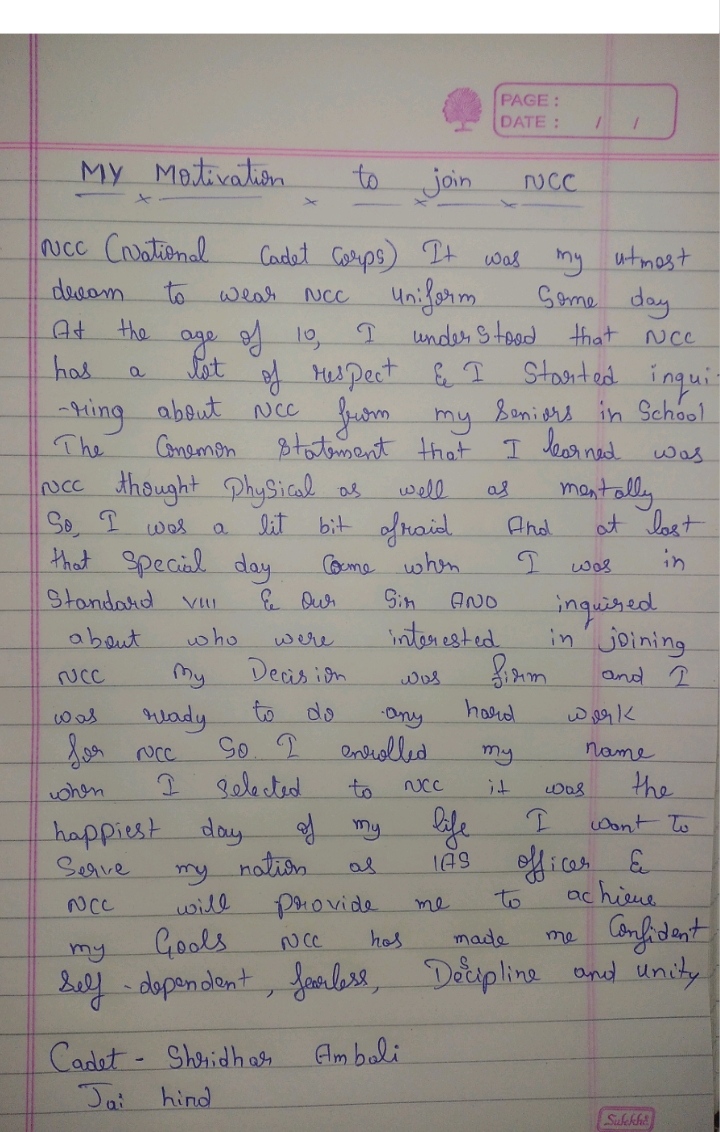 PAGE :
DATE : / /
MY Motivation to join NCC
NCC (National Cadet Corps) It was my utmost
dream to wear NCC Uniform Some day
At the age of 10, I understood that NCC
has a lot of respect & I Started inqui-
-ring about NCC from my Seniors in School
The Conemon Statement that I learned was
NCC thought Physical as well as mentally
So, I was a lit bit afraid And at last
that special day Came when I was in
Standard VIII & Our Sir ANO inquired
about who were interested in joining
NCC My Decision was firm and I
was ready to do any hard work
for NCC So I enrolled my name
when I Selected to NCC it was the
happiest day of my life I want To
Serve my nation as IAS officer &
NCC will provide me to achieve
my Goals NCC has made me Confident
Self-dependent, fearless, Decsipline and unity
Cadet - Shridhar Ambali
Jai hind
Sulekha